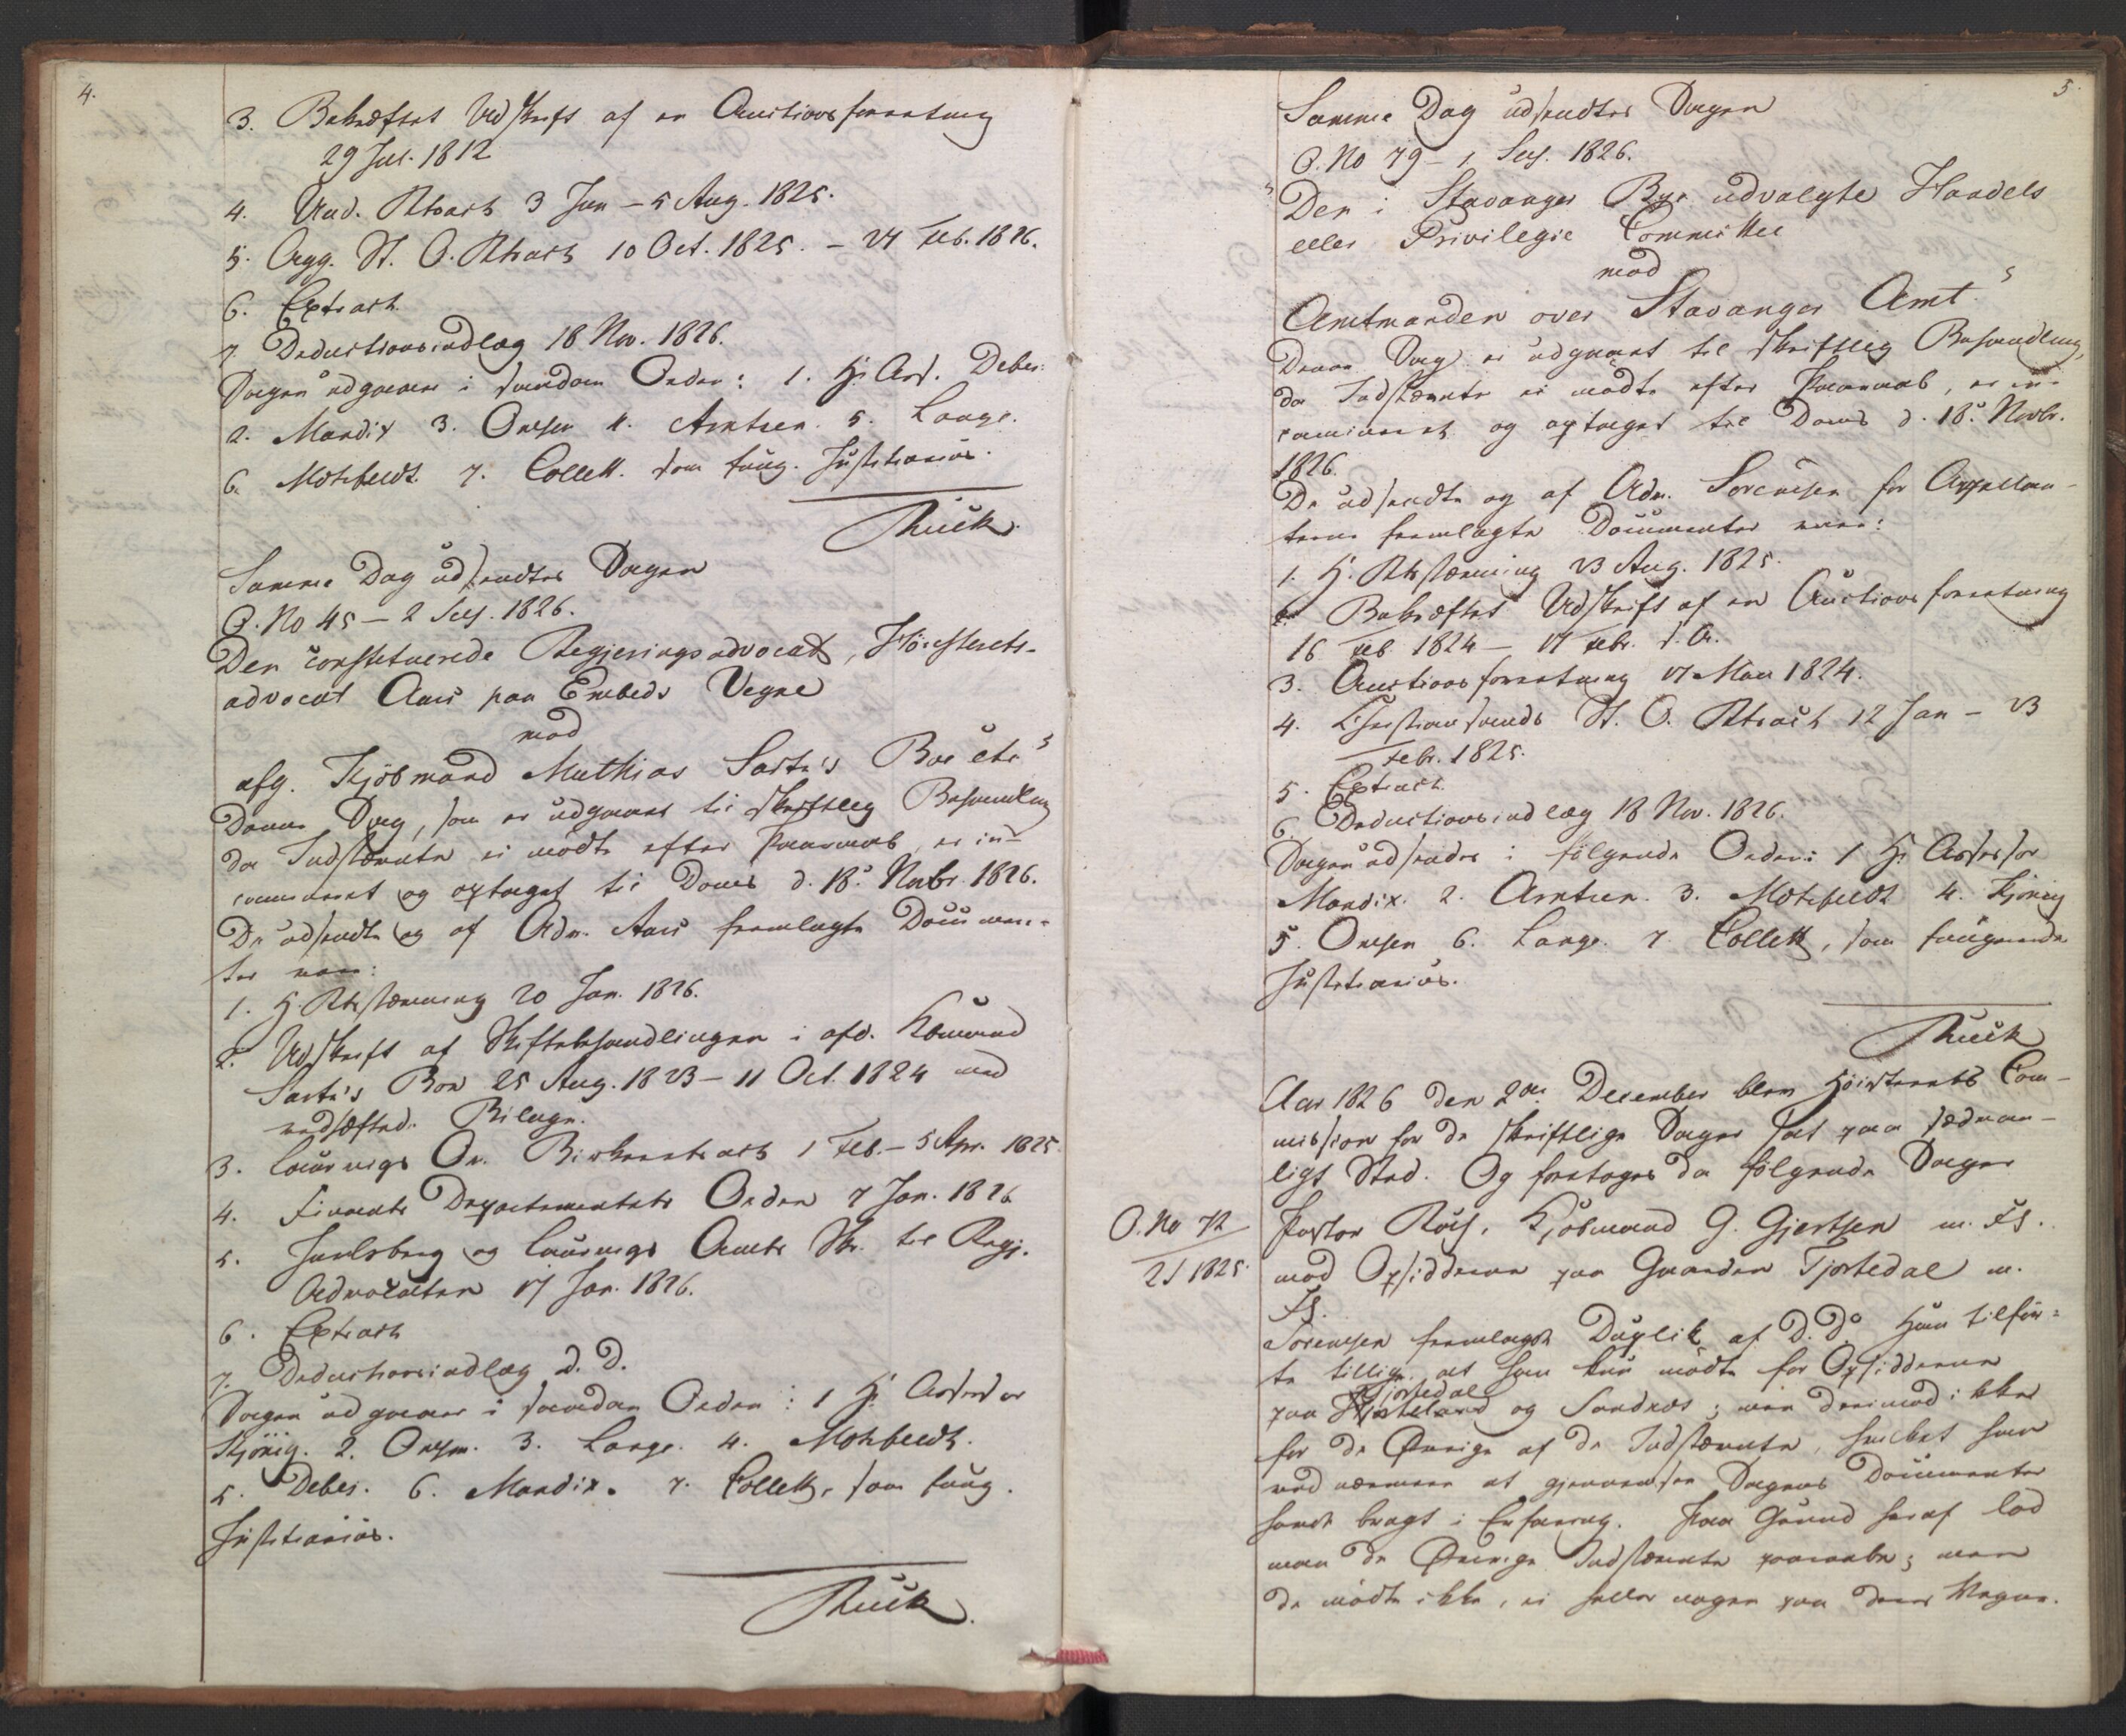 4.
3. Bekræftet Udskrift af en Auctionsforretning
29 Jul. 1812
4. Und. Rtsact 3 Jan – 5 Aug. 1825.
5. Agg. St. O. Rtsact 10 Oct. 1825. – 24 Feb. 1826.
6. Extract.
7. Deductionsindlæg 18 Nov. 1826.
Sagen udgaaer i saadan Orden: 1. Hr Ass. Debes.
2. Mandix 3. Omsen 4. Arntzen. 5. Lange.
6. Motzfeldt. 7. Collett. som fung. Justitiarius.
Ruck.
Samme Dag udsendtes Sagen
O. No 45 – 2 Ses. 1826.
Den constituerede Regjeringsadvocat, Höiesterets-
advocat Aars paa Embeds Vegne
mod
afg. Kjöbmand Mathias Sartz's Boe etc"
Denne Sag, som er udgaaet til skriftlig Behandling
da Indstævnte ei mödte efter Paaraab, er in-
camineret og optaget til Doms d. 18de Novbr. 1826.
De udsendte og af Adv. Aars fremlagte Documen-
ter vare:
1. H. Rtsstævning 20 Jan. 1826.
2. Udskrift af Skiftebehandlingen i afd. Kbmand
Sartz's Boe 25 Aug. 1823 – 11 Oct. 1824 med
vedhæftede Bilage.
3. Laurvigs Ov. Birkeretsact 1 Feb. – 5 Apr. 1825.
4. Finants Departementets Orden 7 Jan. 1826
5. Jarlsberg og Laurvigs Amts Skr. til Regj.
Advocaten 17 Jan. 1826.
6. Extract
7. Deductionsindlæg d. D.
Sagen udgaaer i saadan Orden: 1 Hr Assessor
Kjönig. 2. Omsen. 3. Lange. 4. Motzfeldt.
5. Debes. 6. Mandix. 7. Collett, som fung.
Justitiarius.
Ruck.
5.
Samme Dag udsendtes Sagen
O. No 79 – 1 Ses. 1826.
"Den i Stavanger Bye udvalgte Handels
eller Privilegie Committee
mod
Amtmanden over Stavanger Amt."
Denne Sag er udgaaet til skriftlig Behandling,
da Indstævnte ei mödte efter Paaraab, er in-
camineret og optaget til Doms d. 18de Novbr.
1826.
De udsendte og af Adv. Sörensen for Appellan-
terne fremlagte Documenter vare:
1. H. Rtsstævning 23 Aug. 1825.
2. Bekræftet Udskrift af en Auctionsforretning
16 Feb 1824 – 17 Febr. s. A.
3. Auctionsforretning 17 Mai 1824.
4. Christiansands St. O. Rtsact 12 Jan – 23
Febr. 1825.
5. Extract.
6. Deductionsindlæg 18 Nov. 1826.
Sagen udsendes i fölgende Orden: 1 Hr Assessor
Mandix. 2. Arntzen. 3. Motzfeldt 4. Kjönig
5. Omsen 6. Lange. 7. Collett, som fungerende
Justitiarius.
Ruck
Aar 1826 den 2den December blev Höiesterets Com-
mission for de skriftlige Sager sat paa sædvan-
ligt Sted. Og foretoges da fölgende Sager
O. No 72
2 S 1825.
Pastor Röys, Kjöbmand G. Gjertsen m. Fl.
mod Opsidderne paa Gaarden Tjostedal m.
Fl.
Sörensen fremlagde Duplik af D. Do Han tilför-
te tillige, at han kun mödte for Opsidderne
Tjostedal
paa og Sandnæs; men derimod ikke
for de Övrige af de Indstævnte, hvilket han
ved nærmere at gjennemsee Sagens Documenter
havde bragt i Erfaring. Paa Grund heraf lod
man de Övrige Indstævnte paaraabe; men
de mödte ikke, ei heller nogen paa deres Vegne.